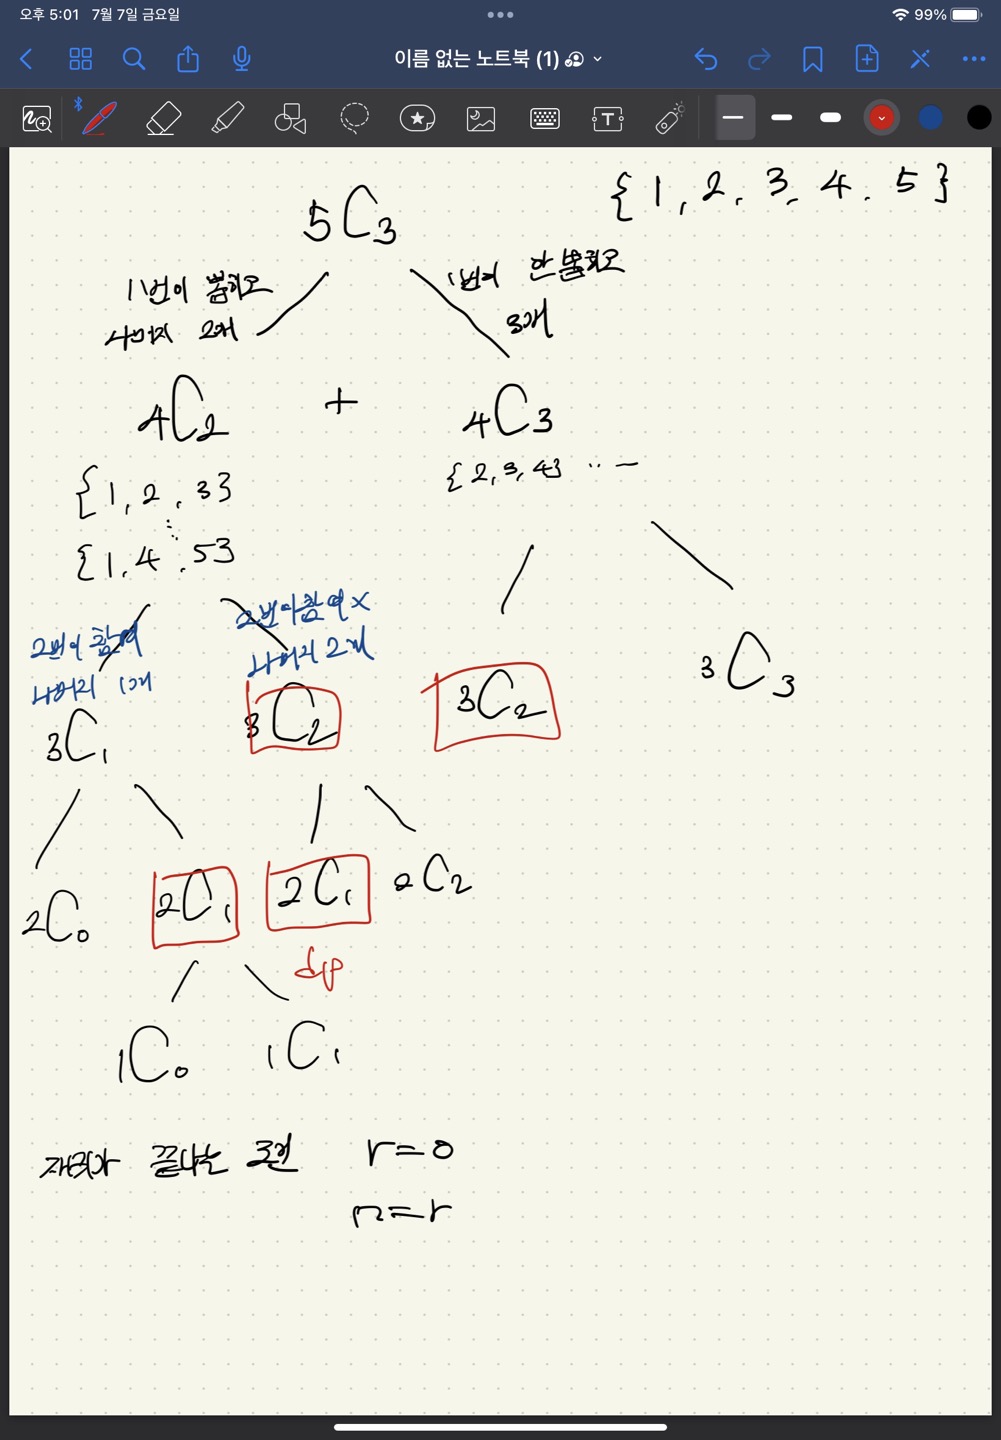 오후 5:01 7월 7일 금요일
99%
이름 없는 노트북 (1)
{ 1, 2, 3, 4. 5 }
5C3
1번이 뽑히고
나머지 2개
1번이 안 뽑히고
3개
4C2 + 4C3
{1, 2, 3}
{2, 3, 4} ...
{1, 4, 5}
2번이 참여
나머지 1개
2번이 참여 x
나머지 2개
3C1
3C2
3C2
3C3
2C0
2C1
2C1
2C2
dp
1C0
1C1
재귀가 끝나는 조건 r=0
n=r